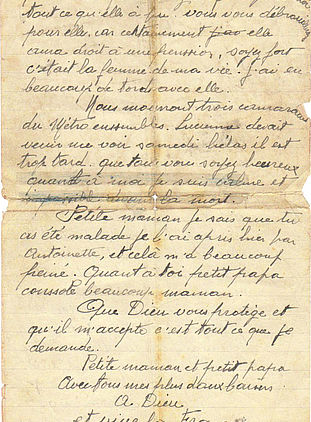 tout ce qu'elle a pu. vous vous débrouillerez
pour elle, car certainement pas elle
aura droit à une pension, soyez fort
c'était la femme de ma vie. J'ai eu
beaucoup de torts avec elle.
Nous mourront trois camarades
du Métro ensembles. Lucienne devait
venir me voir samedi hélas il est
trop tard. que tous vous soyez heureux
quant à moi je suis calme et
impassible devant la mort.
Petite maman je sais que tu
as été malade je l'ai apris hier par
Antoinette, et cela m'a beaucoup
peiné. Quant à toi petit papa
console beaucoup maman.
Que Dieu vous protège et
qu'il m'accepte c'est tout ce que je
demande.
Petite maman et petit papa
Avec tous mes plus doux baisers.
A Dieu
et vive la France